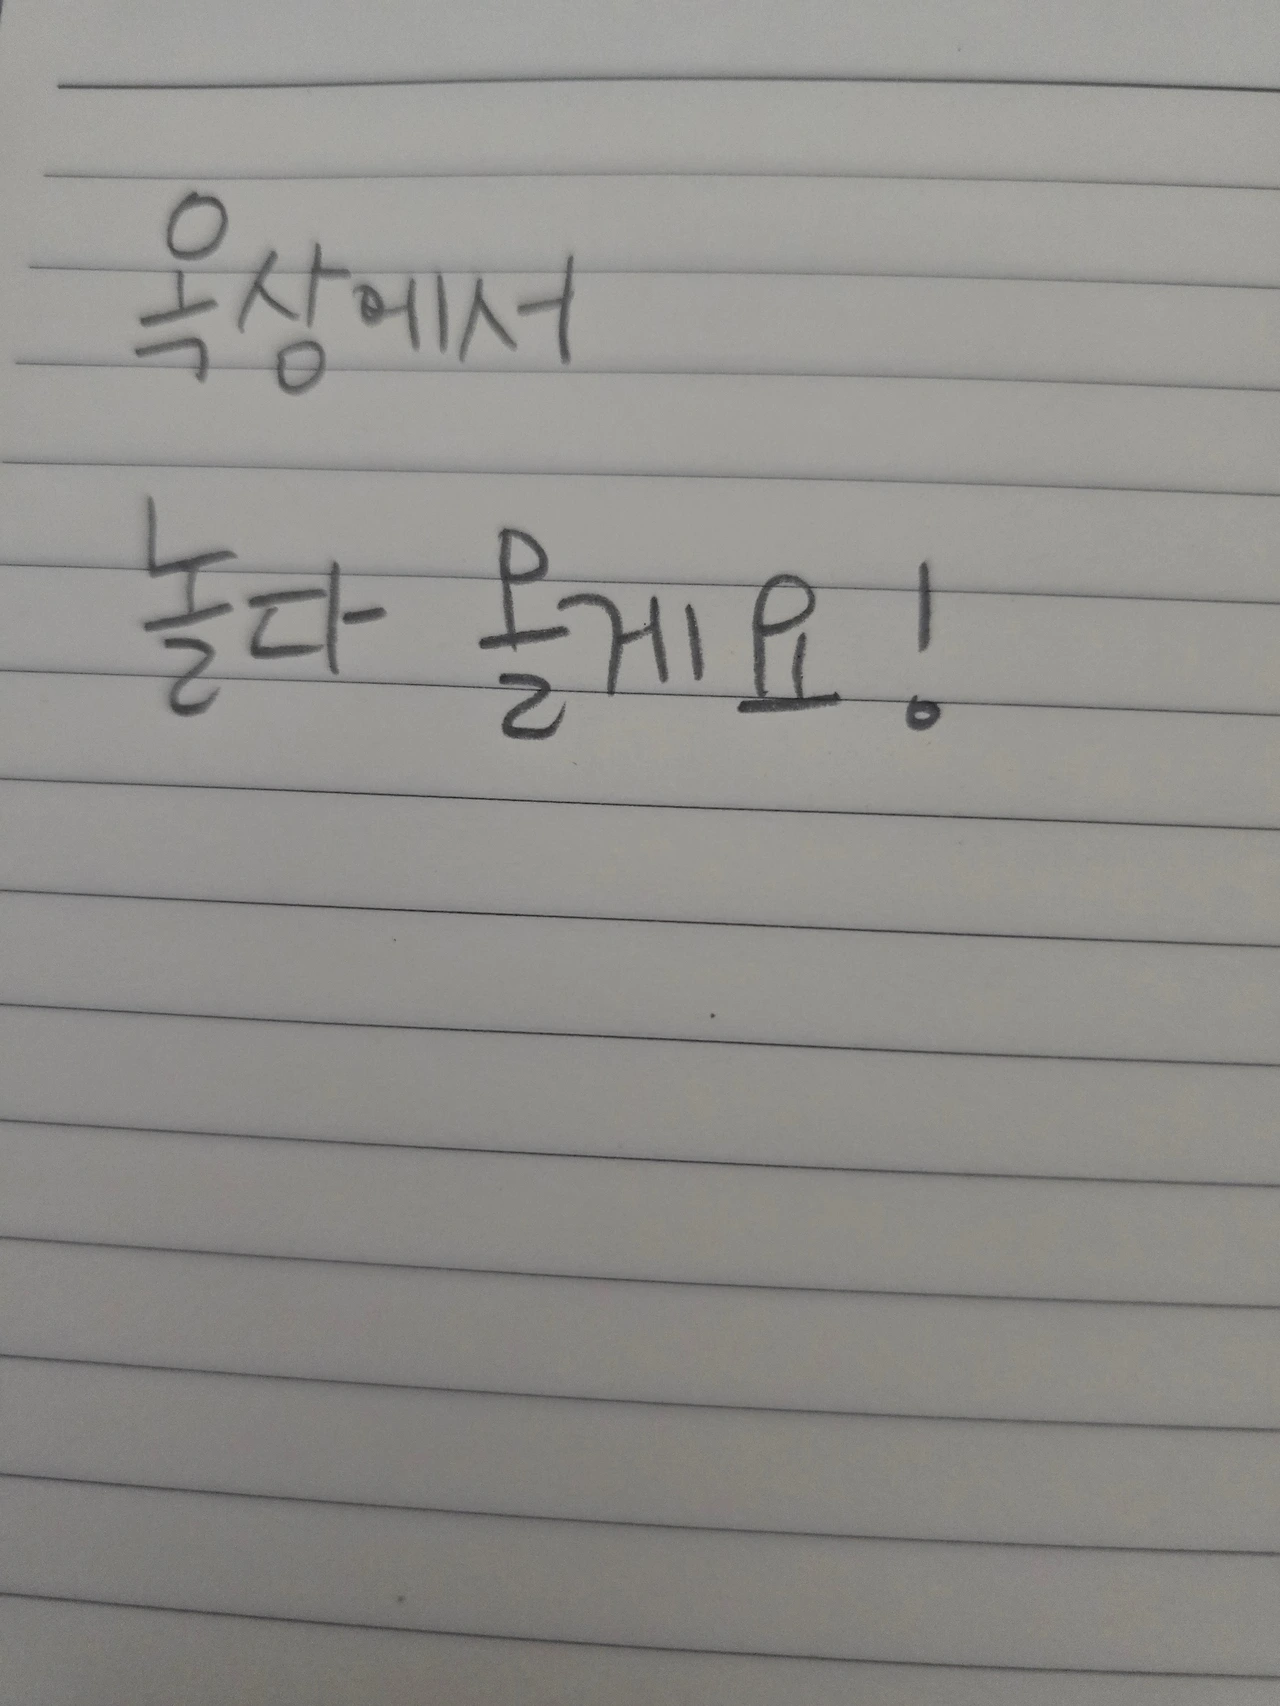 옥상에서
놀다 올게요!